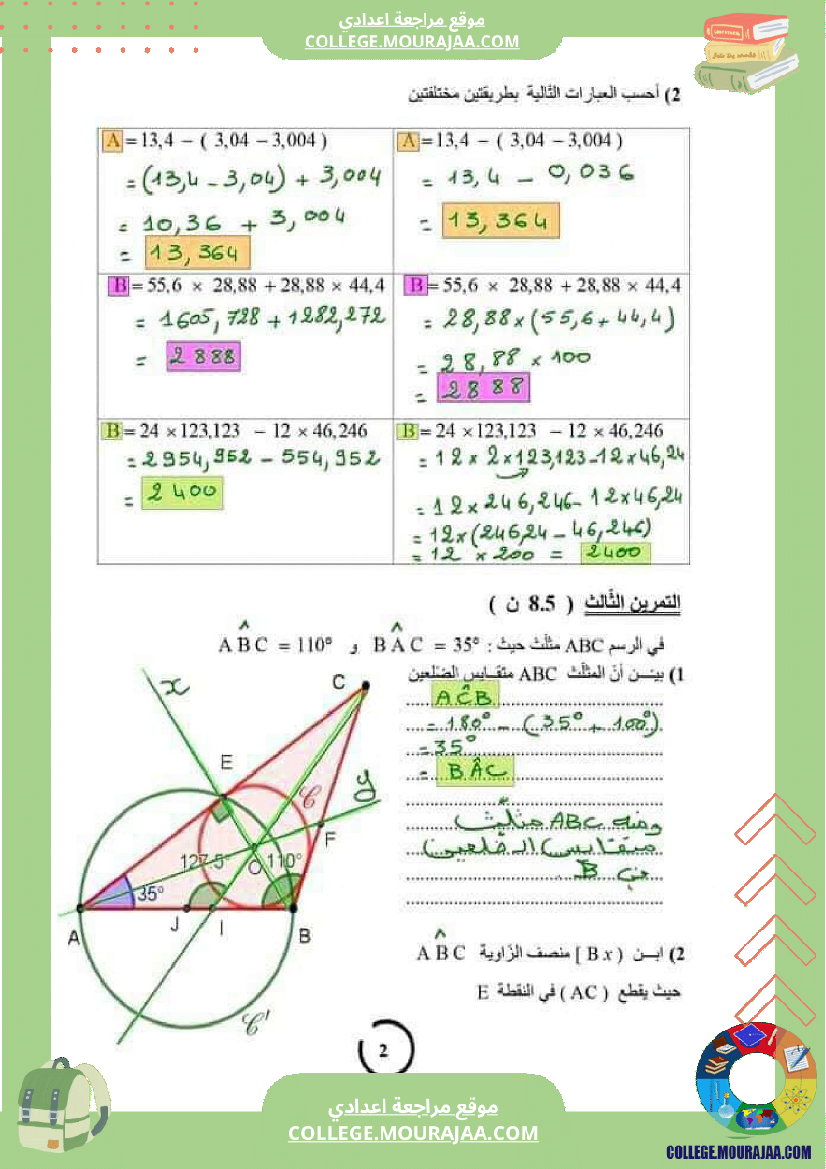 موقع مراجعة اعدادي
COLLEGE.MOURAJAA.COM
2) أحسب العبارات التالية بطريقتين مختلفتين
A = 13,4 − ( 3,04 − 3,004 )
= (13,4 - 3,04) + 3,004
= 10,36 + 3,004
= 13,364
A = 13,4 − ( 3,04 − 3,004 )
= 13,4 - 0,036
= 13,364
B = 55,6 × 28,88 + 28,88 × 44,4
= 1605,728 + 1282,272
= 2888
B = 55,6 × 28,88 + 28,88 × 44,4
= 28,88 × (55,6 + 44,4)
= 28,88 × 100
= 2888
B = 24 × 123,123 − 12 × 46,246
= 2954,952 - 554,952
= 2400
B = 24 × 123,123 − 12 × 46,246
= 12 × 2 × 123,123 - 12 × 46,24
= 12 × 246,246 - 12 × 46,24
= 12 × (246,24 - 46,246)
= 12 × 200 = 2400
التمرين الثالث ( 8.5 ن )
في الرسم ABC مثلث حيث : BÂC = 35° و AB̂C = 110°
1) بيــن أنّ المثلّث ABC متقــايس الضّلعين
AĈB
= 180° - (35° + 100°)
= 35°
= BÂC
ومنه ABC مثلّث
متقايس الضلعين
في B
x
C
E
𝒞
y
F
127.5°
O
110°
35°
A
J
I
B
𝒞'
2) ابــن [ Bx ) منصف الزّاوية AB̂C
حيث يقطع ( AC ) في النقطة E
2
موقع مراجعة اعدادي
COLLEGE.MOURAJAA.COM
COLLEGE.MOURAJAA.COM